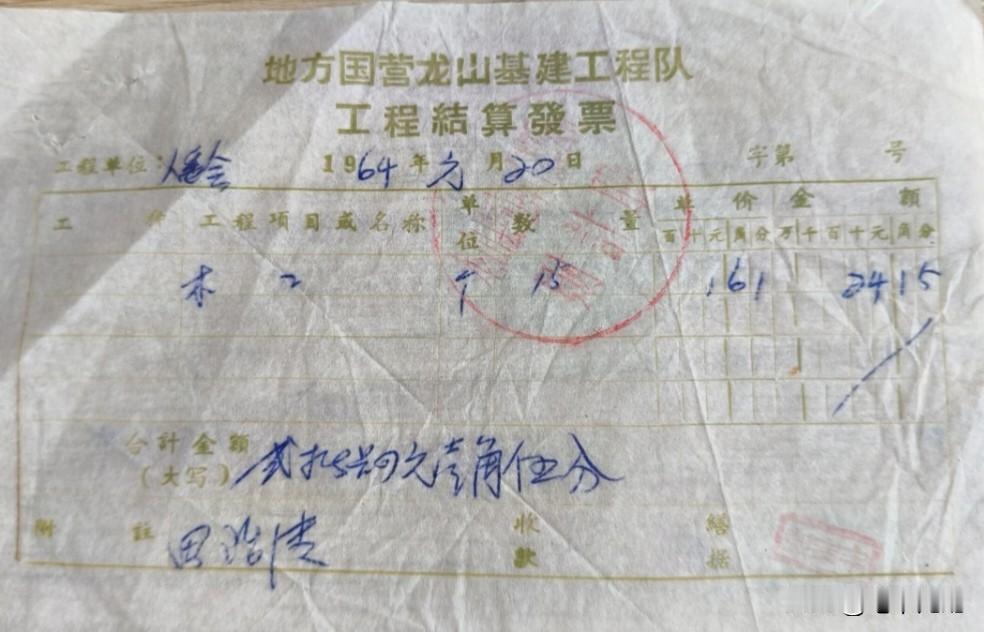 地方国营龙山基建工程队
工程結算發票
工程单位: 1964年元月20日 字第 号
工 工程项目或名称 单位 数量 单价 金额
百十元角分 万千百十元角分
木工 个 15 161 2415
合計金額(大写) 贰拾肆元壹角伍分
附註 田 收款 繕据